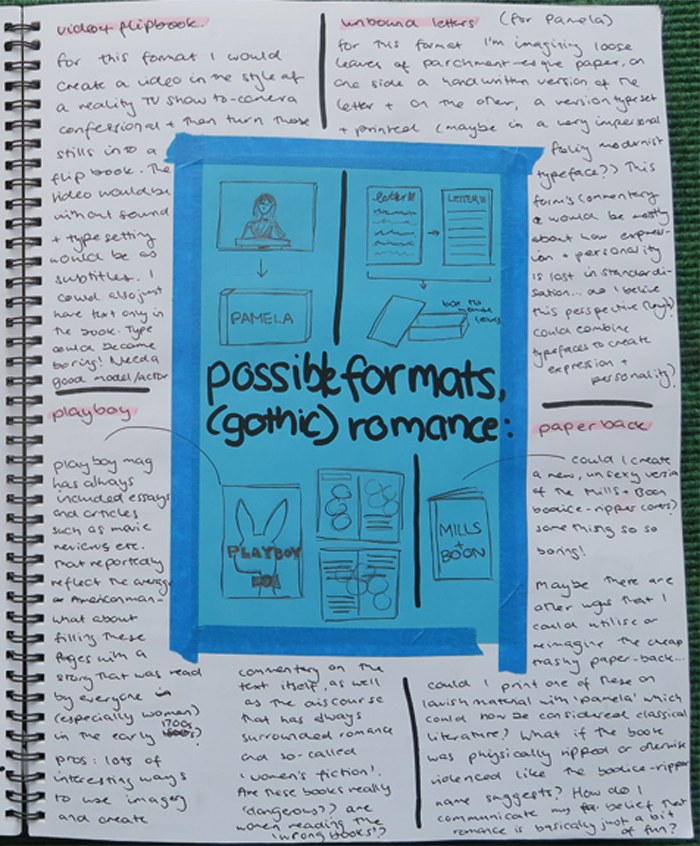 video + flipbook.
for this format I would
create a video in the style of
a reality TV show to-camera
confessional + then turn those
stills into a
flip book. The
video would be
without sound
+ typesetting
would be as
subtitles. I
could also just
have text only in
the book. Type
could become
boring! Need a
good model/actor
unbound letters (for Pamela)
for this format I'm imagining loose
leaves of parchment-esque paper, on
one side a handwritten version of the
letter + on the other, a version typeset
+ printed (maybe in a very impersonal
modernist
typeface??) This
form's commentary
would be mostly
about how express-
ion + personality
is lost in standardi-
sation... do I believe
this perspective
could combine
typefaces to create
expression +
personality?
letter
LETTER
PAMELA
box to
leaves
possible formats,
(gothic) romance:
PLAYBOY
MILLS
+
BOON
playboy
playboy mag
has always
included essays
and articles
such as movie
reviews etc.
that reportedly
reflect the average
American man -
what about
filling these
pages with a
story that was read
by everyone
(especially women)
in the early 1700s?
pros: lots of
interesting ways
to use imagery
and create
commentary on the
text itself, as well
as the discourse
that has always
surrounded romance
and so-called
'women's fiction'.
Are these books really
'dangerous'? are
women reading the
'wrong books'?
paperback
could I create
a new, unsexy version
of the Mills + Boon
bodice-ripper covers?
something so so
boring!
Maybe there are
other ways that I
could utilise or
reimagine the cheap
trashy paper-back...
could I print one of these on
lavish material with 'pamela' which
could now be considered classical
literature? What if the book
was physically ripped or otherwise
violenced like the bodice-ripper
name suggests? How do I
communicate my belief that
romance is basically just a bit
of fun?